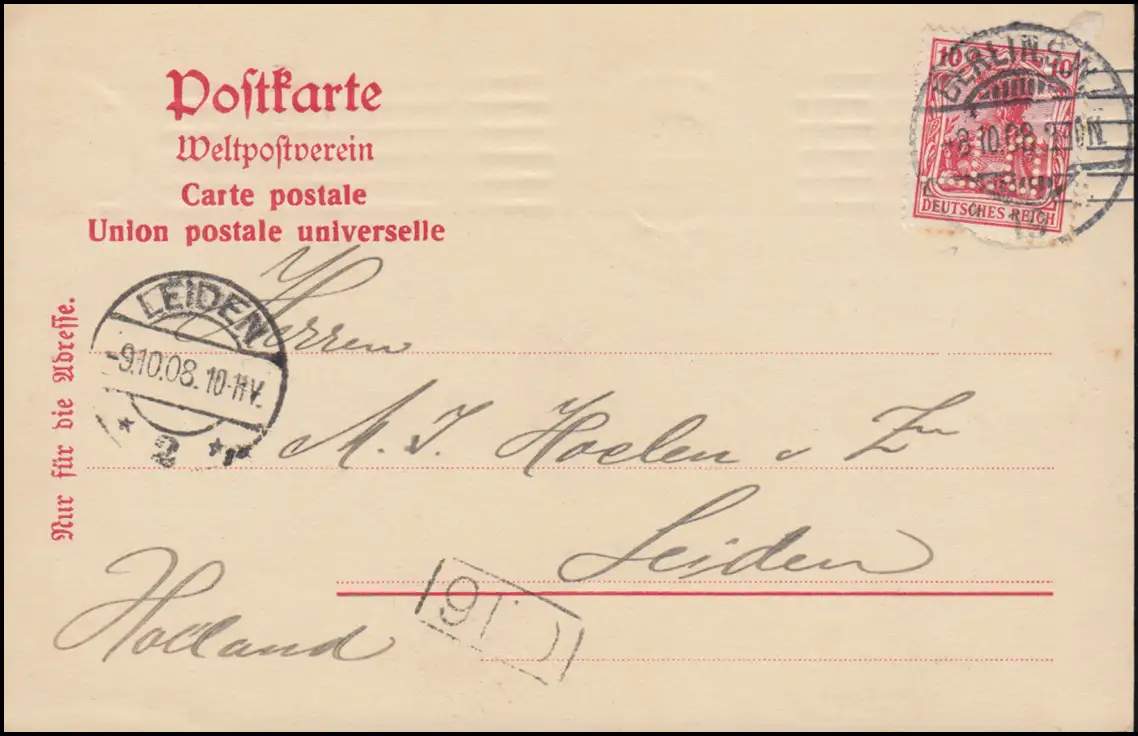 Postkarte
Weltpostverein
Carte postale
Union postale universelle
Nur für die Adresse.
10 10
DEUTSCHES REICH
BERLIN S.W.
8.10.08.
LEIDEN
-9.10.08. 10-11V.
2
Herren
M. J. Hoelen & Zn
Leiden
Holland
91